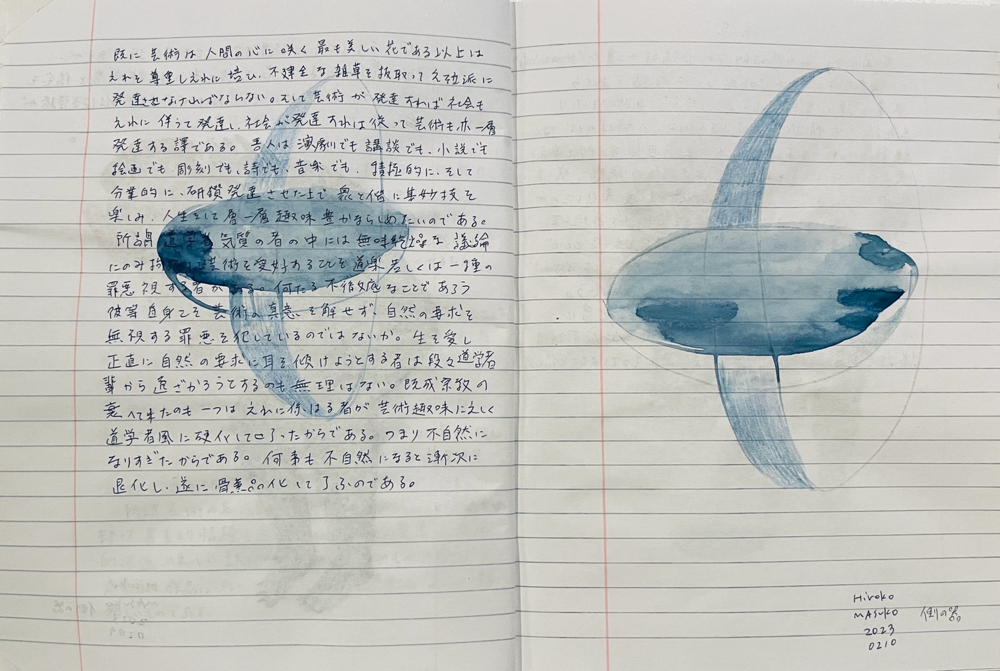 既に芸術は人間の心に咲く最も美しい花である以上は
それを尊重しそれに培ひ、不健全な雑草を抜取って元位派に
発達させなければならない。そして芸術が発達すれば社会も
それに伴うて発達し、社会が発達すれば従って芸術も亦一層
発達する譯である。吾人は演劇でも講談でも、小説でも
絵画でも、彫刻でも、詩でも、音楽でも、積極的に、そして
分業的に、研鑚発達させた上で衆と偕に其妙技を
楽しみ、人生をして層一層趣味豊かならしめたいのである。
所謂道学者気質の者の中には無味乾燥な議論
にのみ芸術を愛好することを道楽若しくは一種の
罪悪視する者がある。何たる不徹底なことであろう
彼等自身こそ芸術の真意を解せず、自然の要求を
無視する罪悪を犯しているのではないか。生を愛し
正直に自然の要求に耳を傾けようとする者は段々道学者
輩から遠ざかろうとするのも無理はない。既成宗教の
衰へて来たのも一つはそれに係はる者が芸術趣味に乏しく
道学者風に硬化して了ったからである。つまり不自然に
なりすぎたからである。何事も不自然になると漸次に
退化し、遂に骨董品化して了ふのである。
Hiroko
MASUKO 倒の器
2023
0210